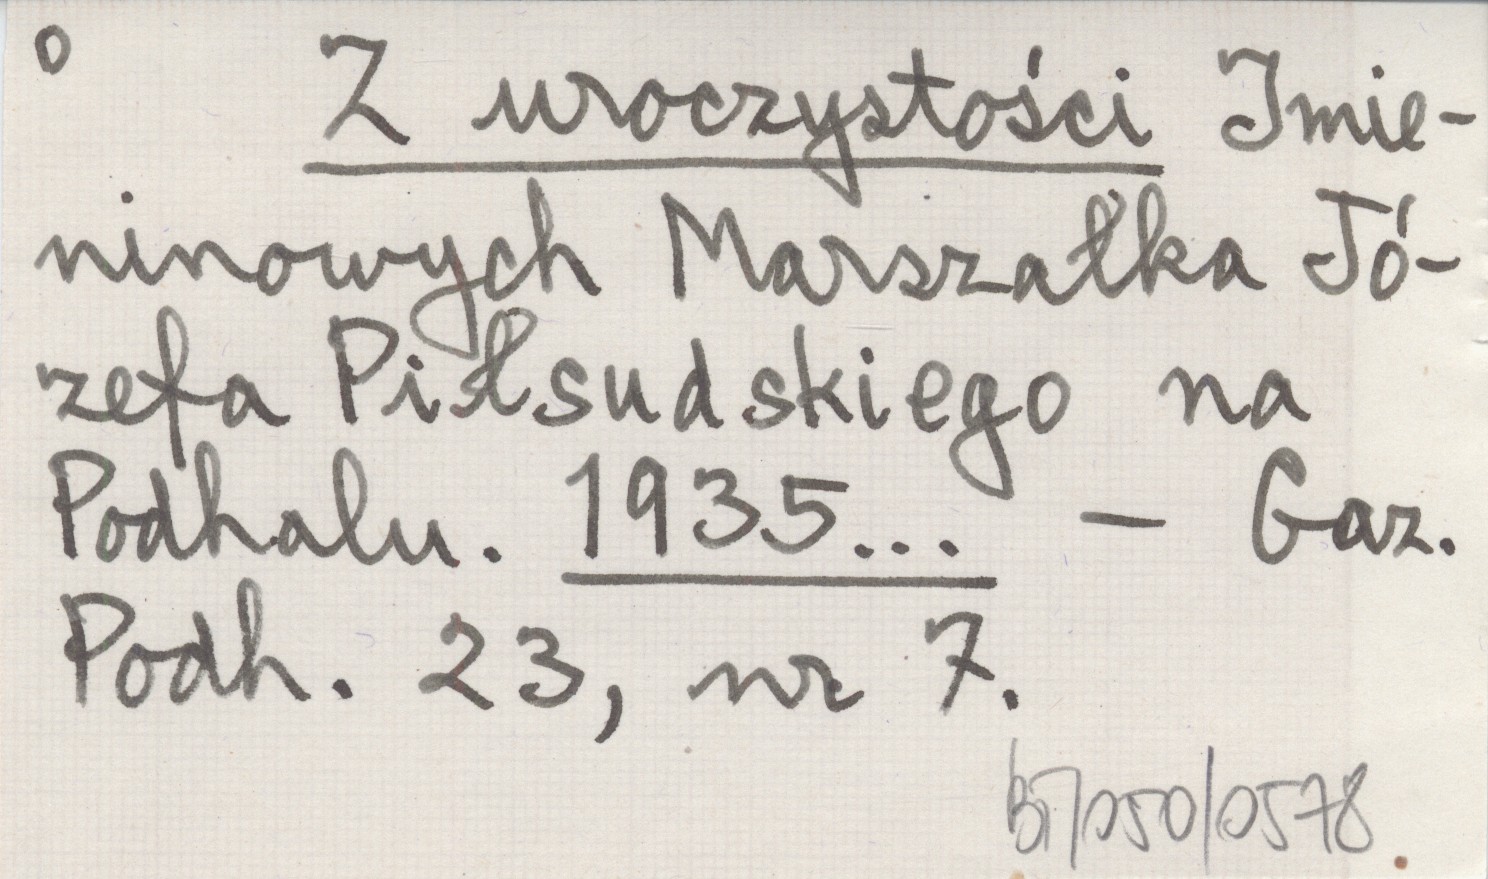 o Z uroczystości Imie-
ninowych Marszałka Jó-
zefa Piłsudskiego na
Podhalu. 1935... – Gaz.
Podh. 23, nr 7.
Bi/050/0578